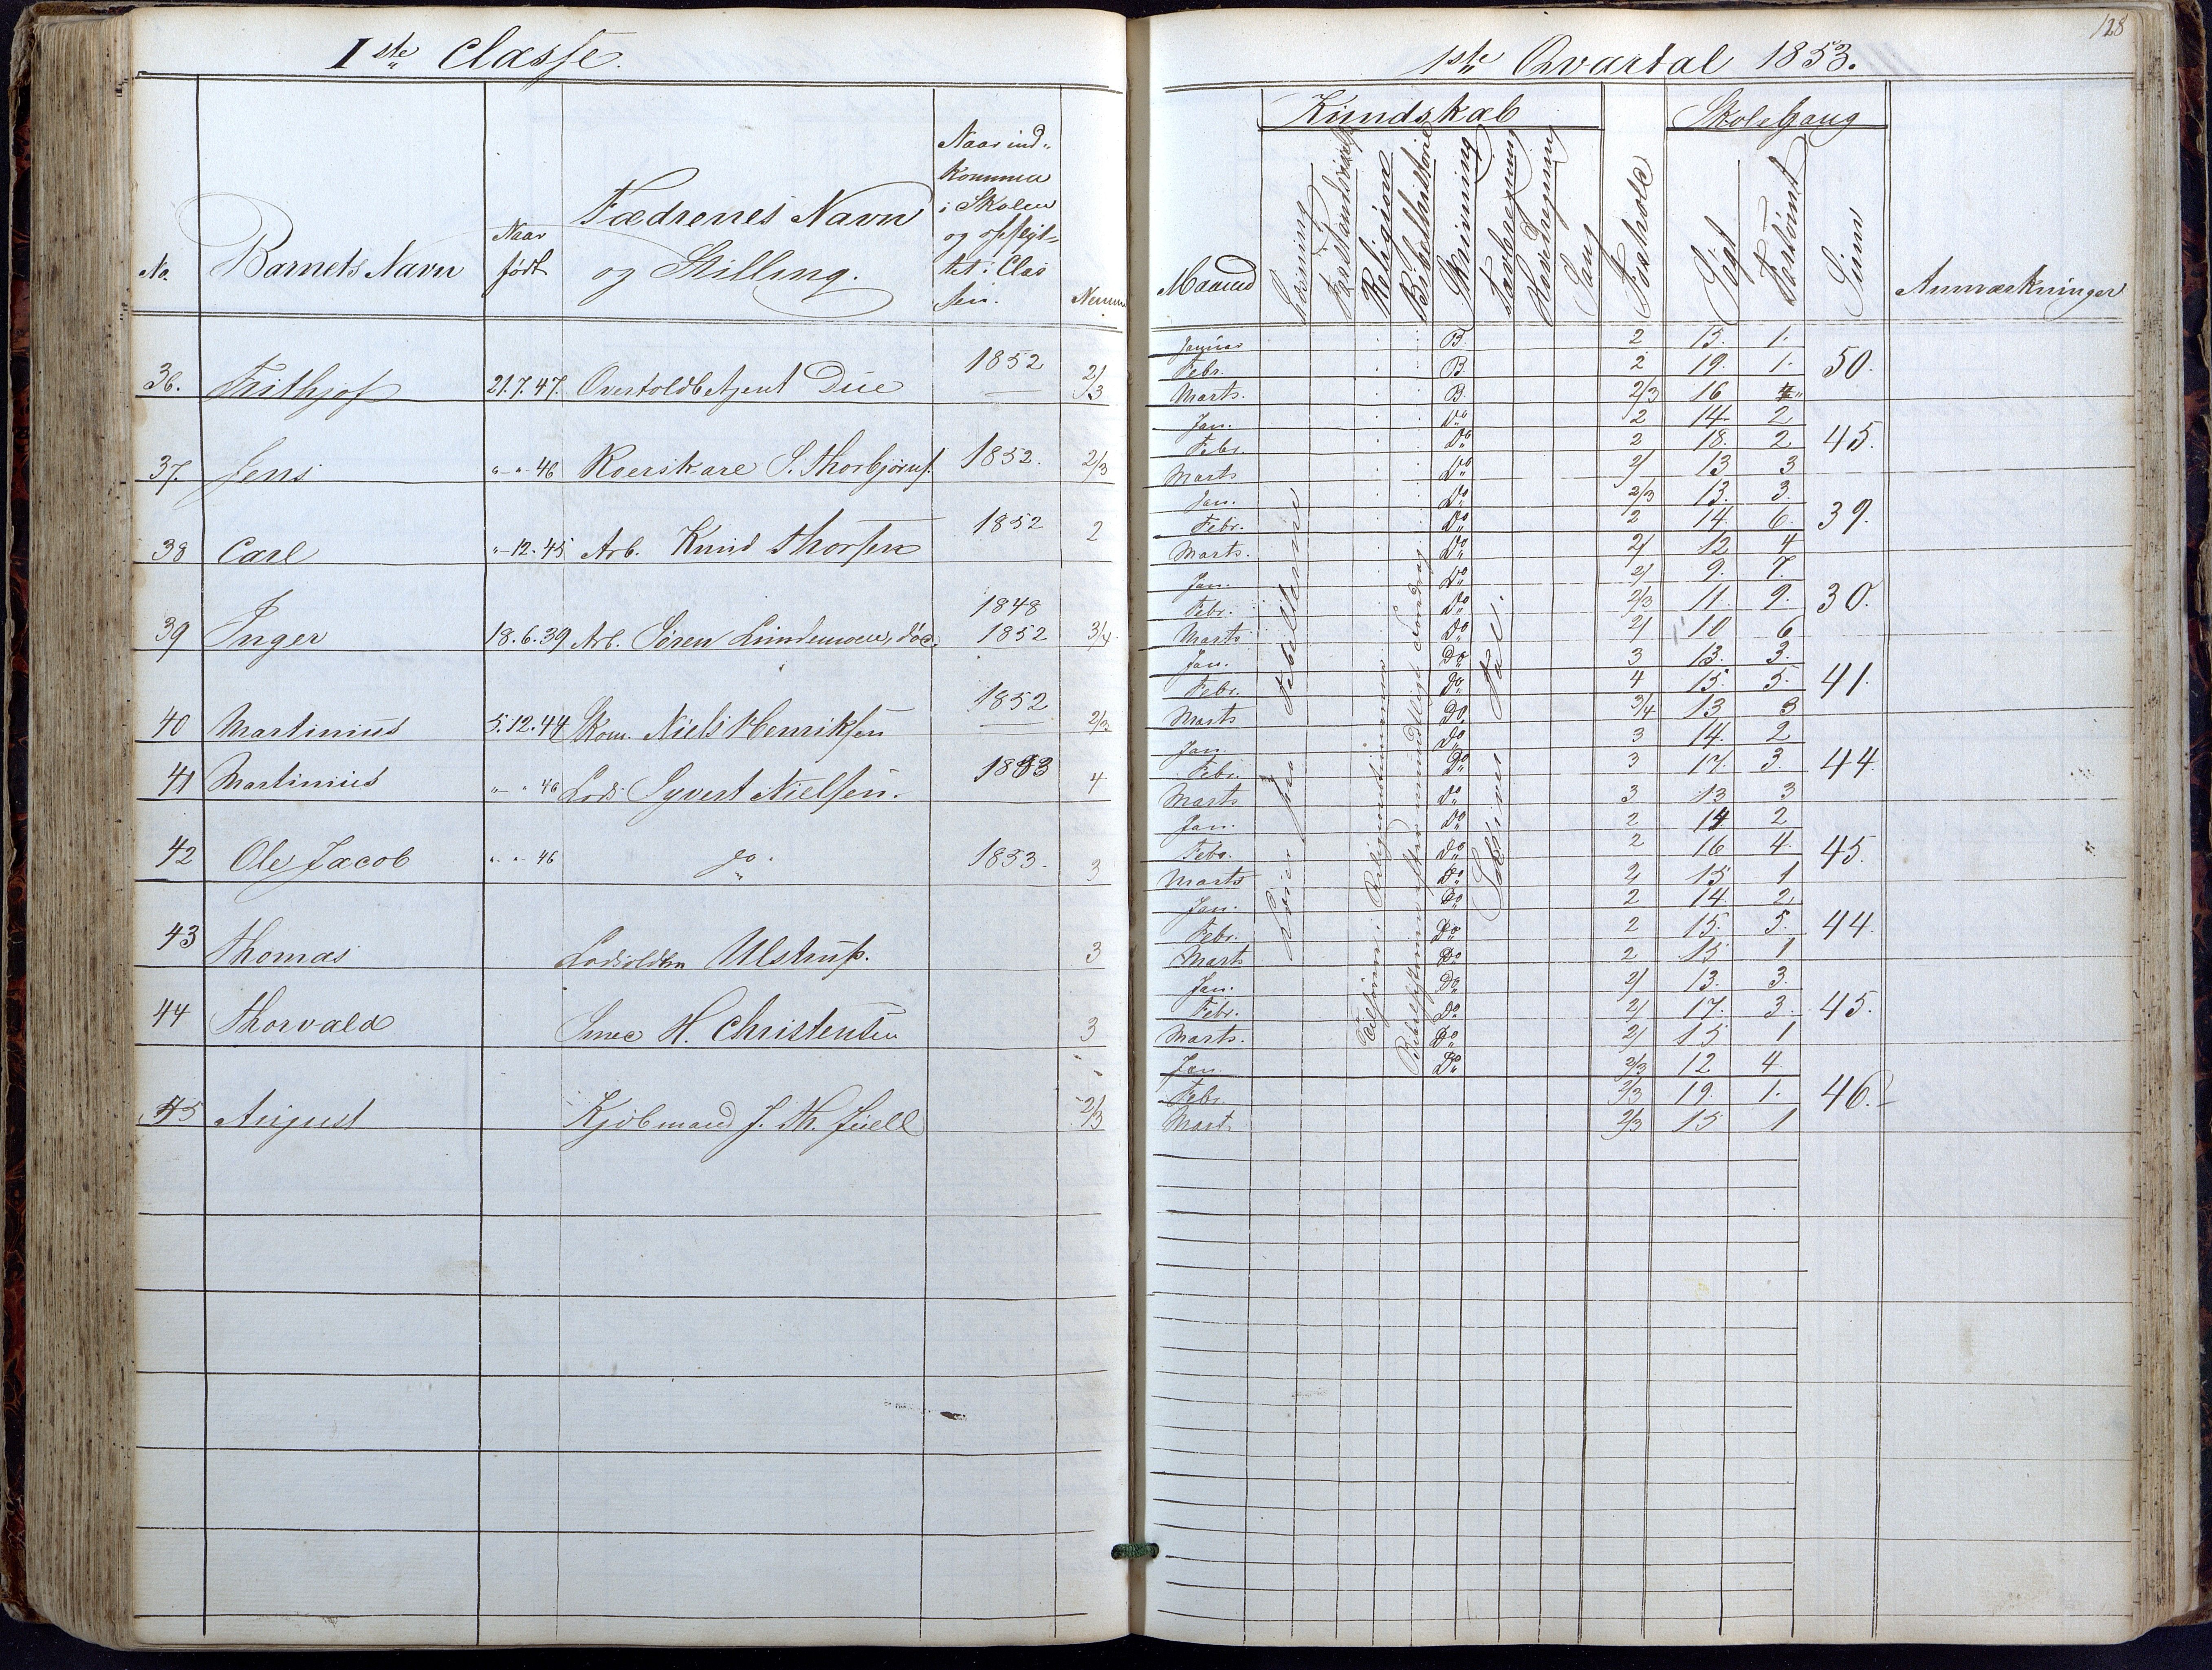 Iste Classe.
No. Barnets Navn Naar født Fædrenes Navn og Stilling. Naar ind- kommen i Skolen og opflyt- tet i Clas sen. Nemme
36. Frithjof 21.7.47. Overtoldbetjent Due 1852 2/3
37. Jens " - " 46 S. Thorbjørns. 1852. 2/3
38 Carl " - 12. 45 Arb. Knud Thorsen 1852 2
39 Inger 18.6.39 Arb. Søren 1848 1852 3/4
40 Martinius 5.12.44 Skom. Niels Henriksen 1852 2/3
41 Martinius " - " 46 Lods Syvert Nielsen. 1853 4
42 Ole Jacob " - " 46 do. 1853. 3
43 Thomas Ulstrup. 3
44 Thorvald Smed H. Christensen 3
45 August Kjøbmand J. Th. Juell 2/3
128
1ste Qvartal 1853.
Kundskab Skolegang
Maaned Læsning Forstandsøvelse Religion Bibelhistorie Skrivning Tavleregning Hovedregning Sang Forhold Søgt Forsømt Sum Anmærkninger
Januar B. 2 15. 1.
Febr. B 2 19. 1. 50.
Marts. B. 2/3 16
Jan. Do 2 14. 2
Febr. Do 2 18. 2 45.
Marts Do 2/ 13 3
Jan. Do 2/3 13. 3.
Febr. Do 2 14. 6. 39.
Marts. Do 2/ 12 4
Jan. Do 2/ 9. 7.
Febr. Do 2/3 11. 9. 30.
Marts Do 2/ 10 6
Jan. Do 3 13. 3.
Febr. Do 4 15. 5. 41.
Marts Do 3/4 13 3
Jan. Do 3 14. 2
Febr. Do 3 17. 3. 44.
Marts Do 3 13 3
Jan. Do 2 14 2
Febr. Do 2 16 4. 45.
Marts Do 2/ 15 1
Jan. Do 2 14. 2.
Febr. Do 2 15. 5. 44.
Marts Do 2 15 1
Jan. Do 2/ 13. 3.
Febr. Do 2/ 17. 3. 45.
Marts. Do 2/ 15 1
Jan. Do 2/3 12 4.
Febr. 2/3 19. 1. 46.
Mart. 2/3 15 1